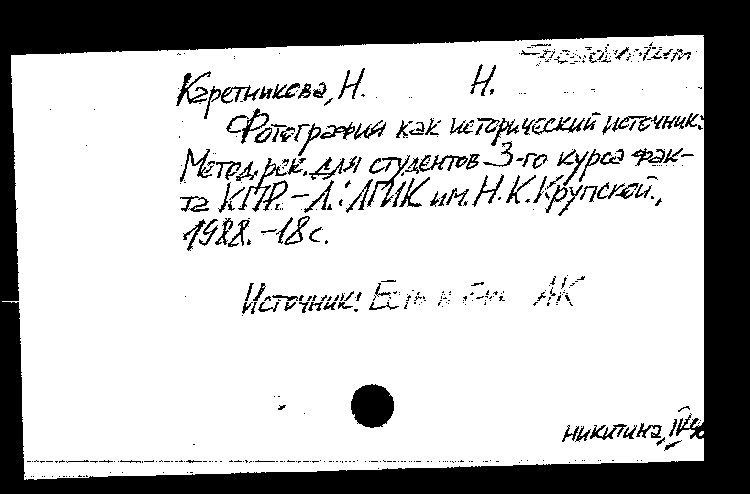 Каретникова, Н. Н.
Фотография как исторический источник:
Метод. рек. для студентов 3-го курса фак-
та КПР. - Л.: ЛГИК им. Н. К. Крупской.,
1988. - 18 с.
Источник: Есть в АК
никитина, IV